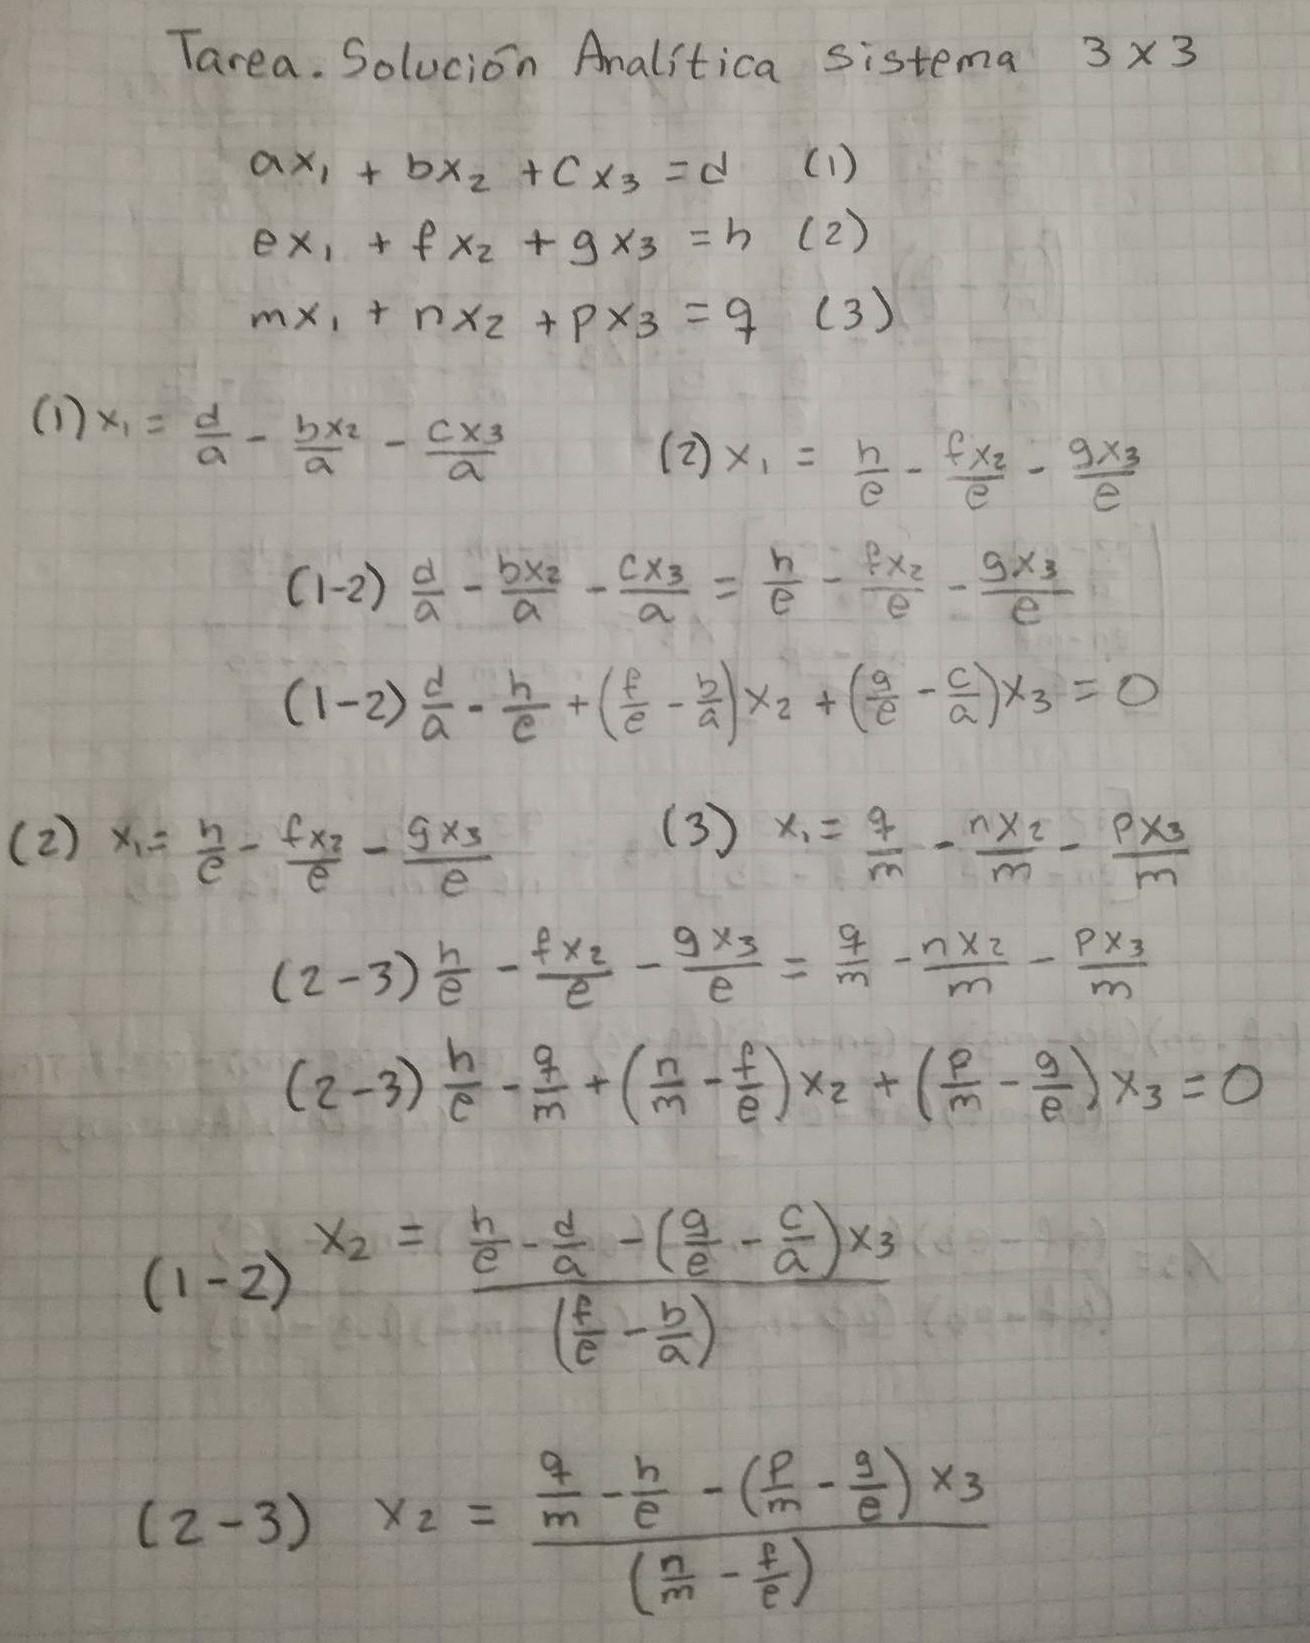 Tarea. Solución Analítica sistema 3x3
ax₁ + bx₂ + cx₃ = d (1)
ex₁ + fx₂ + gx₃ = h (2)
mx₁ + nx₂ + px₃ = q (3)
(1) x₁ = d/a - bx₂/a - cx₃/a (2) x₁ = h/e - fx₂/e - gx₃/e
(1-2) d/a - bx₂/a - cx₃/a = h/e - fx₂/e - gx₃/e
(1-2) d/a - h/e + (f/e - b/a)x₂ + (g/e - c/a)x₃ = 0
(2) x₁ = h/e - fx₂/e - gx₃/e (3) x₁ = q/m - nx₂/m - px₃/m
(2-3) h/e - fx₂/e - gx₃/e = q/m - nx₂/m - px₃/m
(2-3) h/e - q/m + (n/m - f/e)x₂ + (p/m - g/e)x₃ = 0
(1-2) x₂ = (h/e - d/a - (g/e - c/a)x₃)/(f/e - b/a)
(2-3) x₂ = (q/m - h/e - (p/m - g/e)x₃)/(n/m - f/e)